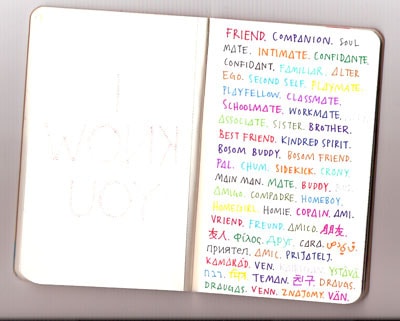 FRIEND. COMPANION. SOUL
MATE. INTIMATE. CONFIDANTE.
CONFIDANT. FAMILIAR. ALTER
EGO. SECOND SELF. PLAYMATE.
PLAYFELLOW. CLASSMATE.
SCHOOLMATE. WORKMATE.
ASSOCIATE. SISTER. BROTHER.
BEST FRIEND. KINDRED SPIRIT.
BOSOM BUDDY. BOSOM FRIEND.
PAL. CHUM. SIDEKICK. CRONY.
MAIN MAN. MATE. BUDDY.
AMIGO. COMPADRE. HOMEBOY.
HOMEGIRL. HOMIE. COPAIN. AMI.
VRIEND. FREUND. AMICO. 朋友.
友人. Φίλος. Друг. CARA.
приятел. AMIC. PRIJATELJ.
KAMARÁD. VEN. YSTÄVÄ.
חבר. TEMAN. 친구. DRAUGS.
DRAUGAS. VENN. ZNAJOMY. VÄN.
I
KNOW
YOU